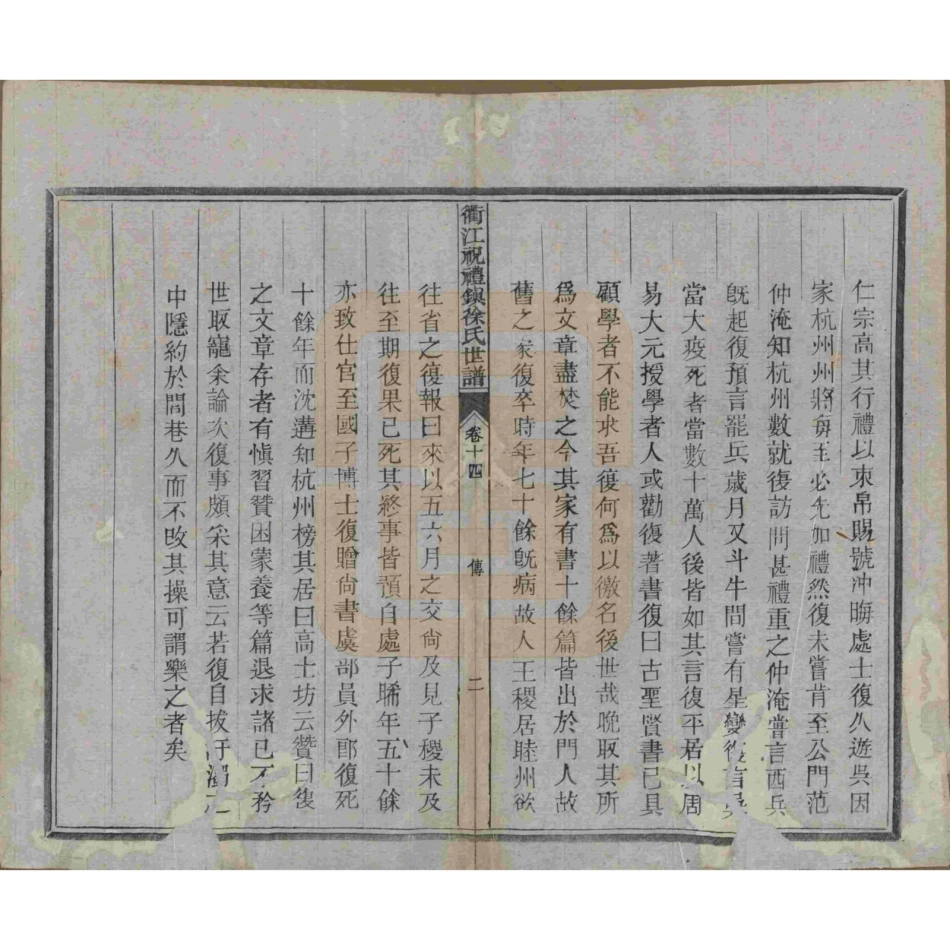 仁宗高其行禮以束帛賜號沖晦處士復久遊吳因
家杭州州將每至必先加禮然復未嘗肯至公門范
仲淹知杭州數就復訪問甚禮重之仲淹嘗言西兵
旣起復預言罷兵歲月又斗牛間嘗有星變復言吳
當大疫死者當數十萬人後皆如其言復平居以周
易大元授學者人或勸復著書復曰古聖賢書已具
顧學者不能求吾復何爲以徼名後世哉晩取其所
爲文章盡焚之今其家有書十餘篇皆出於門人故
舊之家復卒時年七十餘旣病故人王稷居睦州欲
衢江祝禮鎮徐氏世譜 卷十四 傳 二
往省之復報曰來以五六月之交尙及見子稷未及
往至期復果已死其終事皆預自處子晞年五十餘
亦致仕官至國子博士復贈尙書虞部員外郎復死
十餘年而沈遘知杭州榜其居曰高士坊云贊曰復
之文章存者有愼習贊困蒙養等篇退求諸己不矜
世取寵余論次復事頗采其意云若復自拔汙濁之
中隱約於閭巷久而不改其操可謂樂之者矣